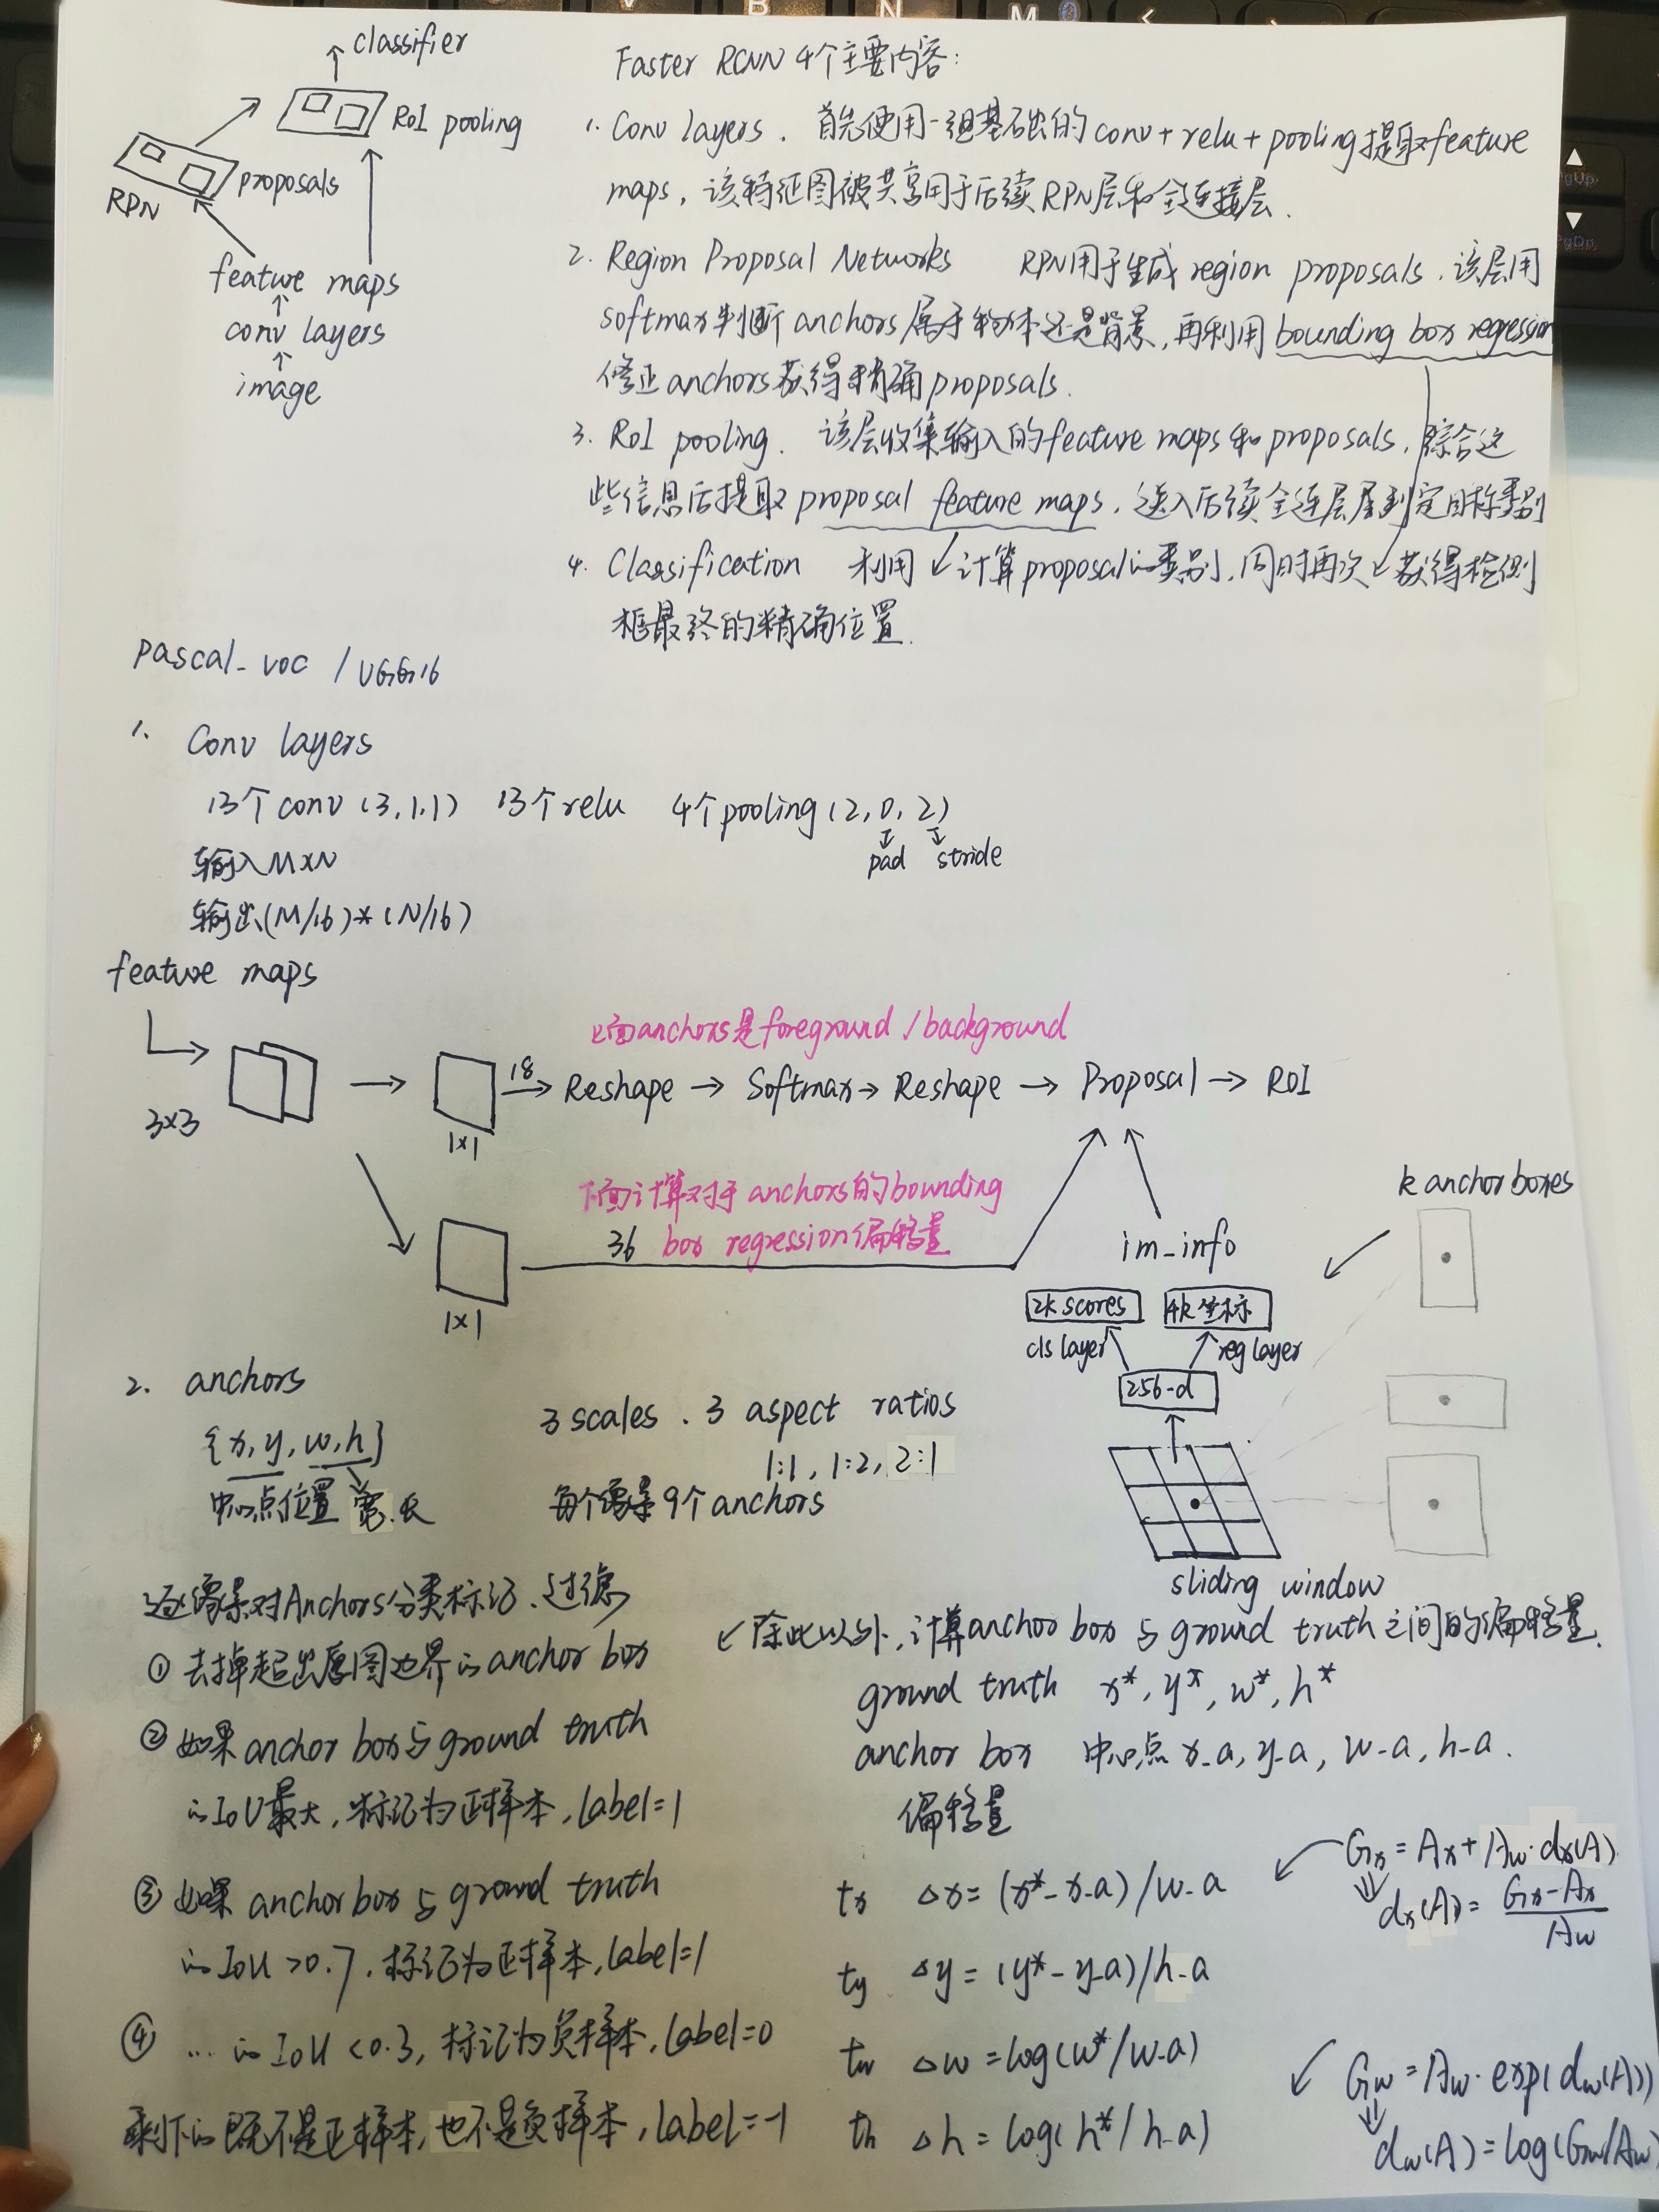 classifier
RoI pooling
proposals
RPN
feature maps
conv layers
image
Faster RCNN 4个主要内容:
1. Conv layers. 首先使用一组基础的conv+relu+pooling提取feature
maps, 该特征图被共享用于后续RPN层和全连接层.
2. Region Proposal Networks RPN用于生成region proposals. 该层用
softmax判断anchors属于物体还是背景, 再利用bounding box regression
修正anchors获得精确proposals.
3. RoI pooling. 该层收集输入的feature maps和proposals, 综合这
些信息后提取proposal feature maps, 送入后续全连层层判定目标类别
4. Classification 利用↙计算proposal的类别, 同时再次↙获得检测
框最终的精确位置.
pascal_voc / VGG16
1. Conv layers
13个conv(3,1,1) 13个relu 4个pooling(2,0,2)
pad stride
输入M×N
输出(M/16)*(N/16)
feature maps
上面anchors是foreground/background
3×3
1×1
18
Reshape → Softmax → Reshape → Proposal → RoI
下面计算对于anchors的bounding
36 box regression偏移量
1×1
im_info
k anchor boxes
2k scores
4k坐标
cls layer
reg layer
256-d
sliding window
2. anchors
{x,y,w,h}
中心点位置 宽.长
3 scales. 3 aspect ratios
1:1, 1:2, 2:1
每个像素9个anchors
逐像素对Anchors分类标记、过滤
① 去掉超出原图边界的anchor box
② 如果anchor box与ground truth
的IoU最大, 标记为正样本, label=1
③ 如果anchor box与ground truth
的IoU>0.7, 标记为正样本, label=1
④ ... 的IoU<0.3, 标记为负样本, label=0
剩下的既不是正样本, 也不是负样本, label=-1
↙除此以外, 计算anchor box与ground truth之间的偏移量.
ground truth x*, y*, w*, h*
anchor box 中心点x_a, y_a, w_a, h_a.
偏移量
tx Δx=(x*-x_a)/w_a
ty Δy=(y*-y_a)/h_a
tw Δw=log(w*/w_a)
th Δh=log(h*/h_a)
Gx=Ax+Aw·dx(A)
dx(A)=(Gx-Ax)/Aw
Gw=Aw·exp(dw(A))
dw(A)=log(Gw/Aw)